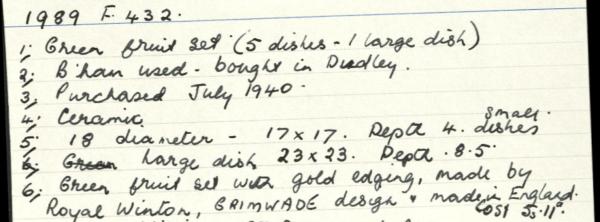 1989 F. 432.
1; Green fruit set (5 dishes - 1 large dish)
2; B'ham used - bought in Dudley.
3; Purchased July 1940.
4; Ceramic
5; 18 diameter - 17x17. Depth 4. small dishes
6; Green Large dish 23x23. Depth. 8.5.
6; Green fruit set with gold edging, made by
Royal Winton, GRIMWADE design & made in England.
Cost 5s. 11d